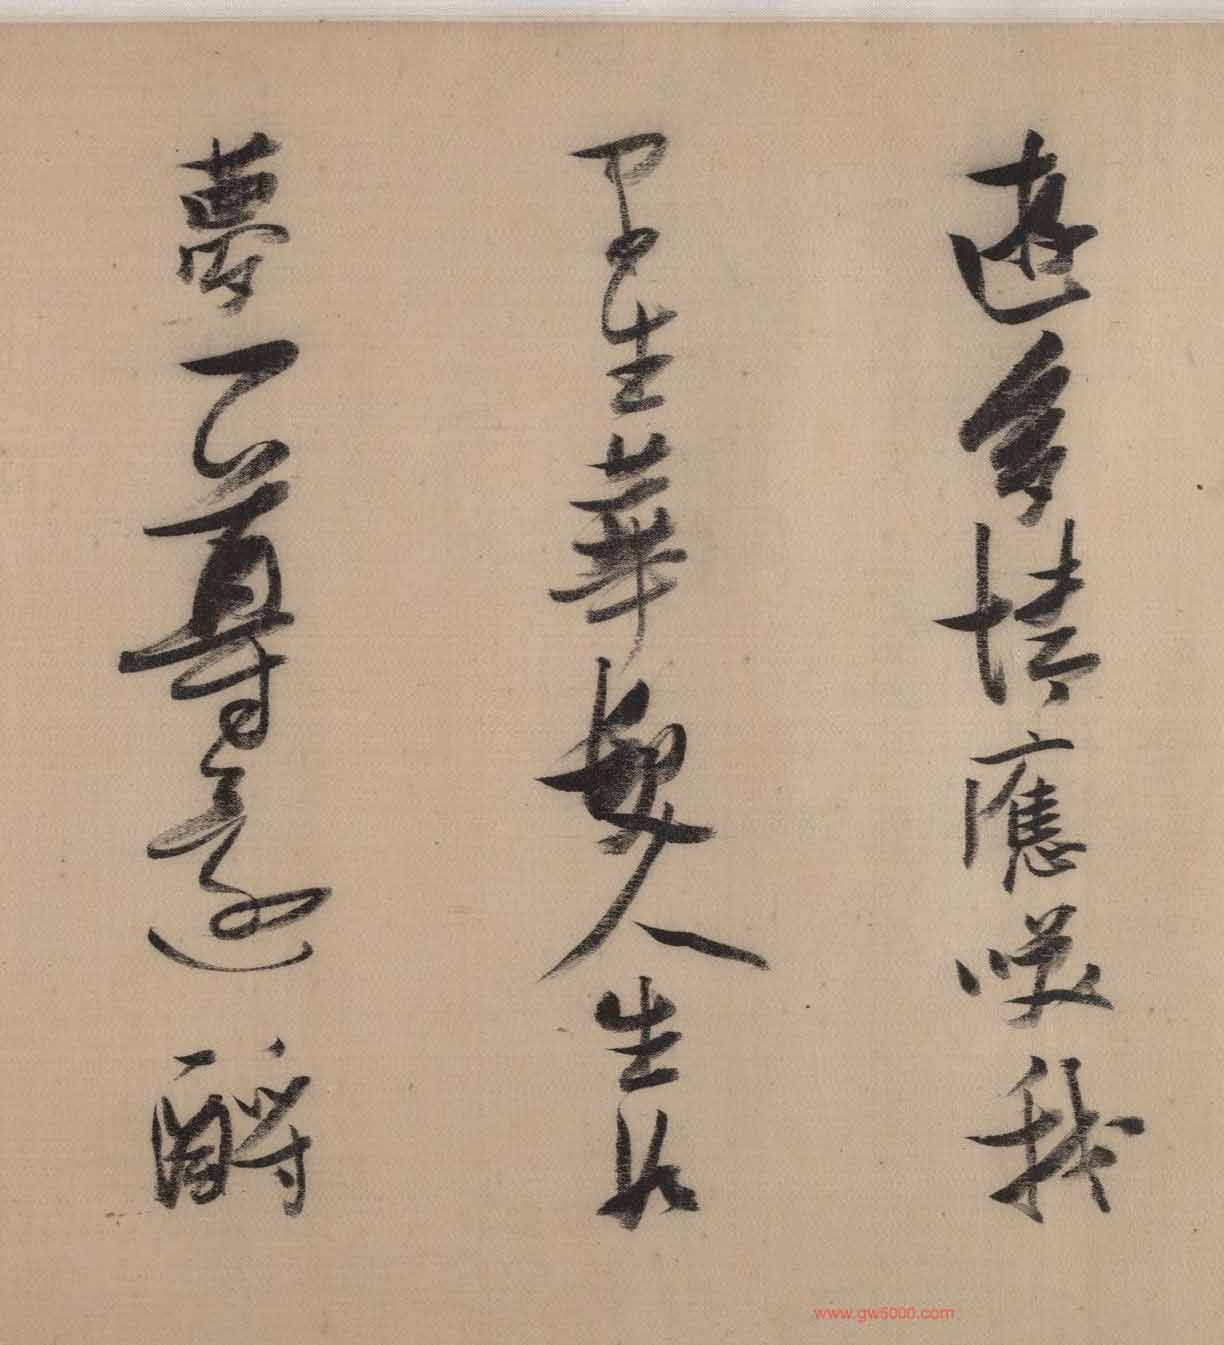 遊多情應咲我
早生華髮人生如
夢一尊還酹
www.gw5000.com